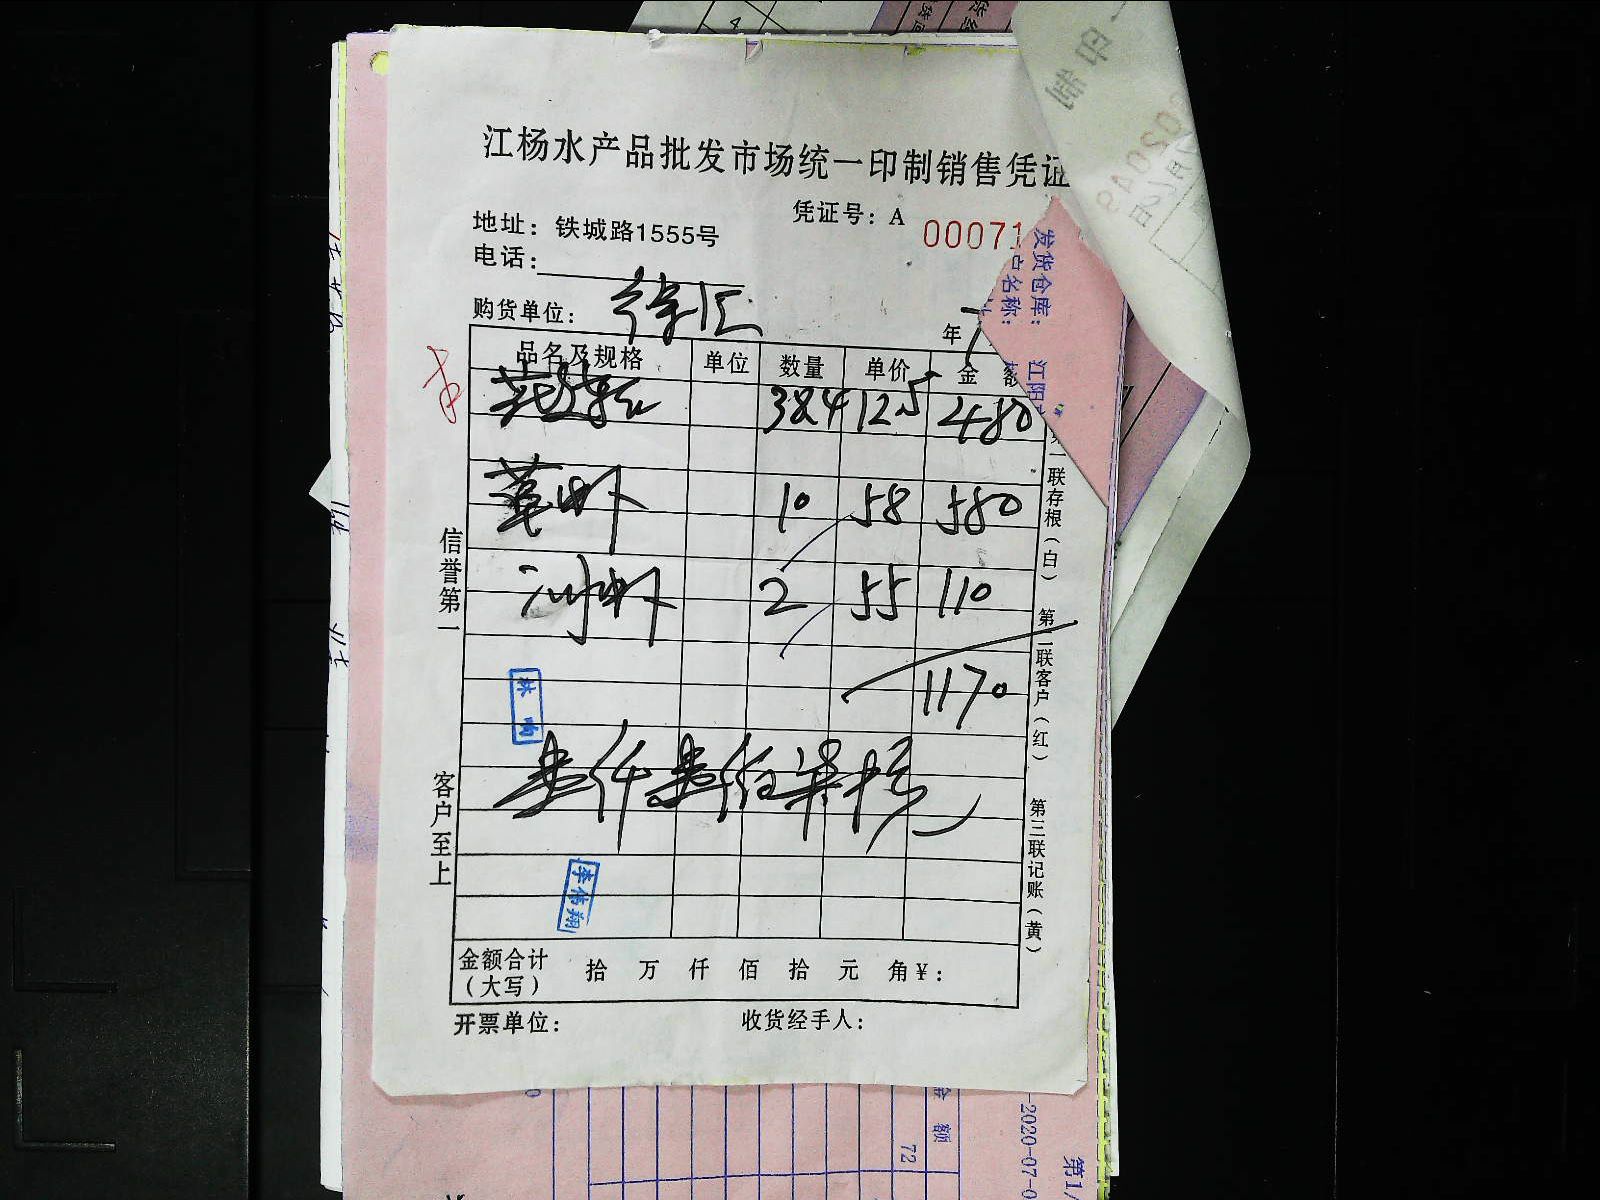 江杨水产品批发市场统一印制销售凭证
凭证号：A 00071
地址：铁城路1555号
电话：
购货单位：徐汇
年
品名及规格 单位 数量 单价 金 额
384 12.5 480
草虾 10 58 580
河虾 2 55 110
1170
壹仟壹佰柒拾元
李伟翔
金额合计
（大写） 拾 万 仟 佰 拾 元 角 ¥：
开票单位： 收货经手人：
信誉第一
客户至上
联存根（白）
第二联客户（红）
第三联记账（黄）
发货仓库：
户名称：
江阴
印制
金 额
72
-2020-07-0
第1/